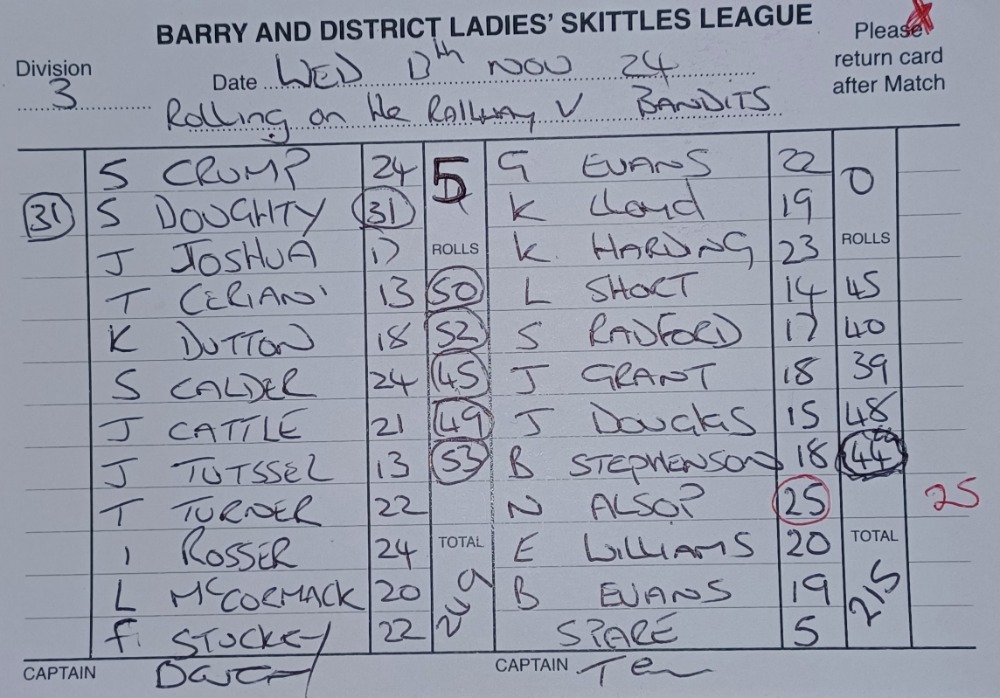 BARRY AND DISTRICT LADIES' SKITTLES LEAGUE
Please
return card
after Match
Division
3
Date WED 13th NOV 24
Rolling on the Railway V BANDITS
S CRUMP 24 5 G EVANS 22 0
31 S DOUGHTY 31 K Lloyd 19
J JOSHUA 17 ROLLS K HARDING 23 ROLLS
T CERIANI 13 50 L SHORT 14 45
K DUTTON 18 52 S RADFORD 17 40
S CALDER 24 45 J GRANT 18 39
J CATTLE 21 49 J DOUGLAS 15 48
J TUTSSEL 13 53 B STEPHENSON 18 44
T TURNER 22 N ALSOP 25 25
I ROSSER 24 TOTAL E WILLIAMS 20 TOTAL
L McCORMACK 20 249 B EVANS 19 215
F STUCKEY 22 SPARE 5
CAPTAIN CAPTAIN